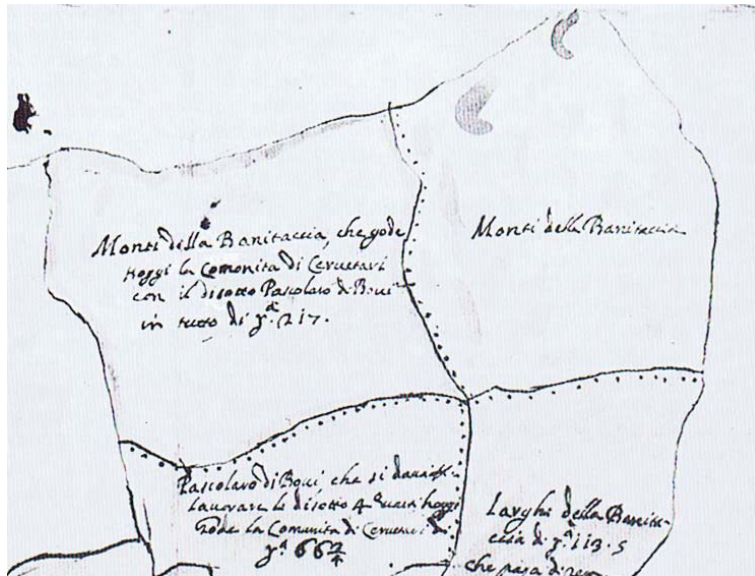 Monti della Banitaccia, che gode
hoggi la Comonita di Cerveteri
con il disotto Pascolaro di Bovi
in tutto di r.ª 217.
Monti della Banitaccia
Pascolaro di Bovi che si dava
Lavorare le disotto 4 hoggi
Gode la Comunita di di
r.ª 66 2/4
Larghi della Banita-
ccia di r.ª 113.5
che